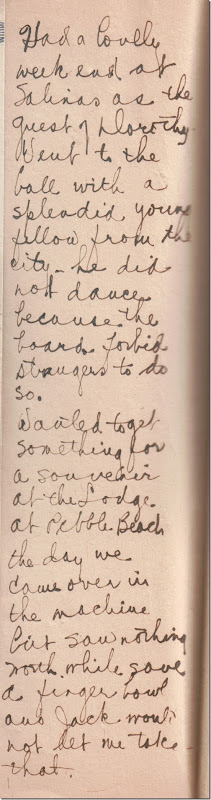 Had a lovely
week end at
Salinas as the
guest of Dorothy.
Went to the
ball with a
splendid young
fellow from the
city - he did
not dance
because the
board forbid
strangers to do
so.
Wanted to get
something for
a souvenir
at the Lodge
at Pebble Beach
the day we
came over in
the machine
but saw nothing
worth while save
a finger bowl
and Jack would
not let me take
that.